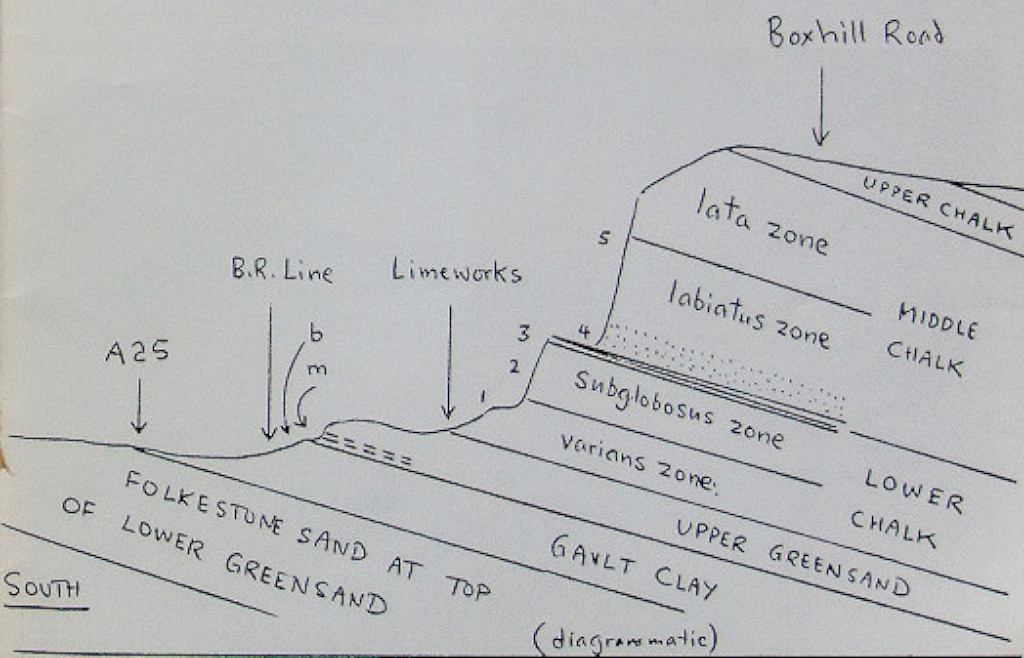 Boxhill Road
UPPER CHALK
lata zone
5
B.R. Line
Limeworks
labiatus zone
MIDDLE
CHALK
A25
b
m
3
4
2
1
Subglobosus zone
varians zone.
LOWER
CHALK
UPPER GREENSAND
FOLKESTONE SAND AT TOP
OF LOWER GREENSAND
GAULT CLAY
SOUTH
(diagrammatic)